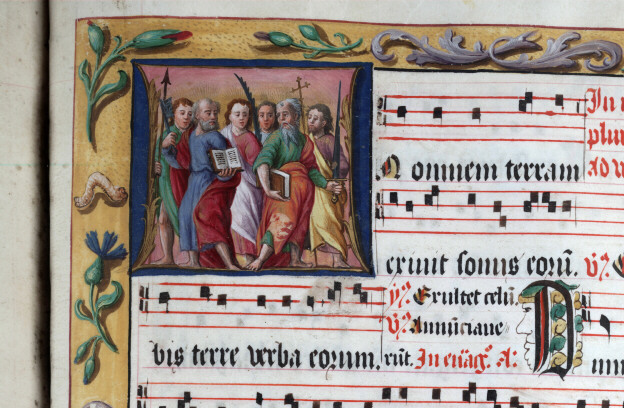 In
n omnem terram ad
exiuit sonus eorū. ℣.
℣. Exultet celū.
℣. Annūciaue
bis terre verba eorum. rūt. In euāg. A: